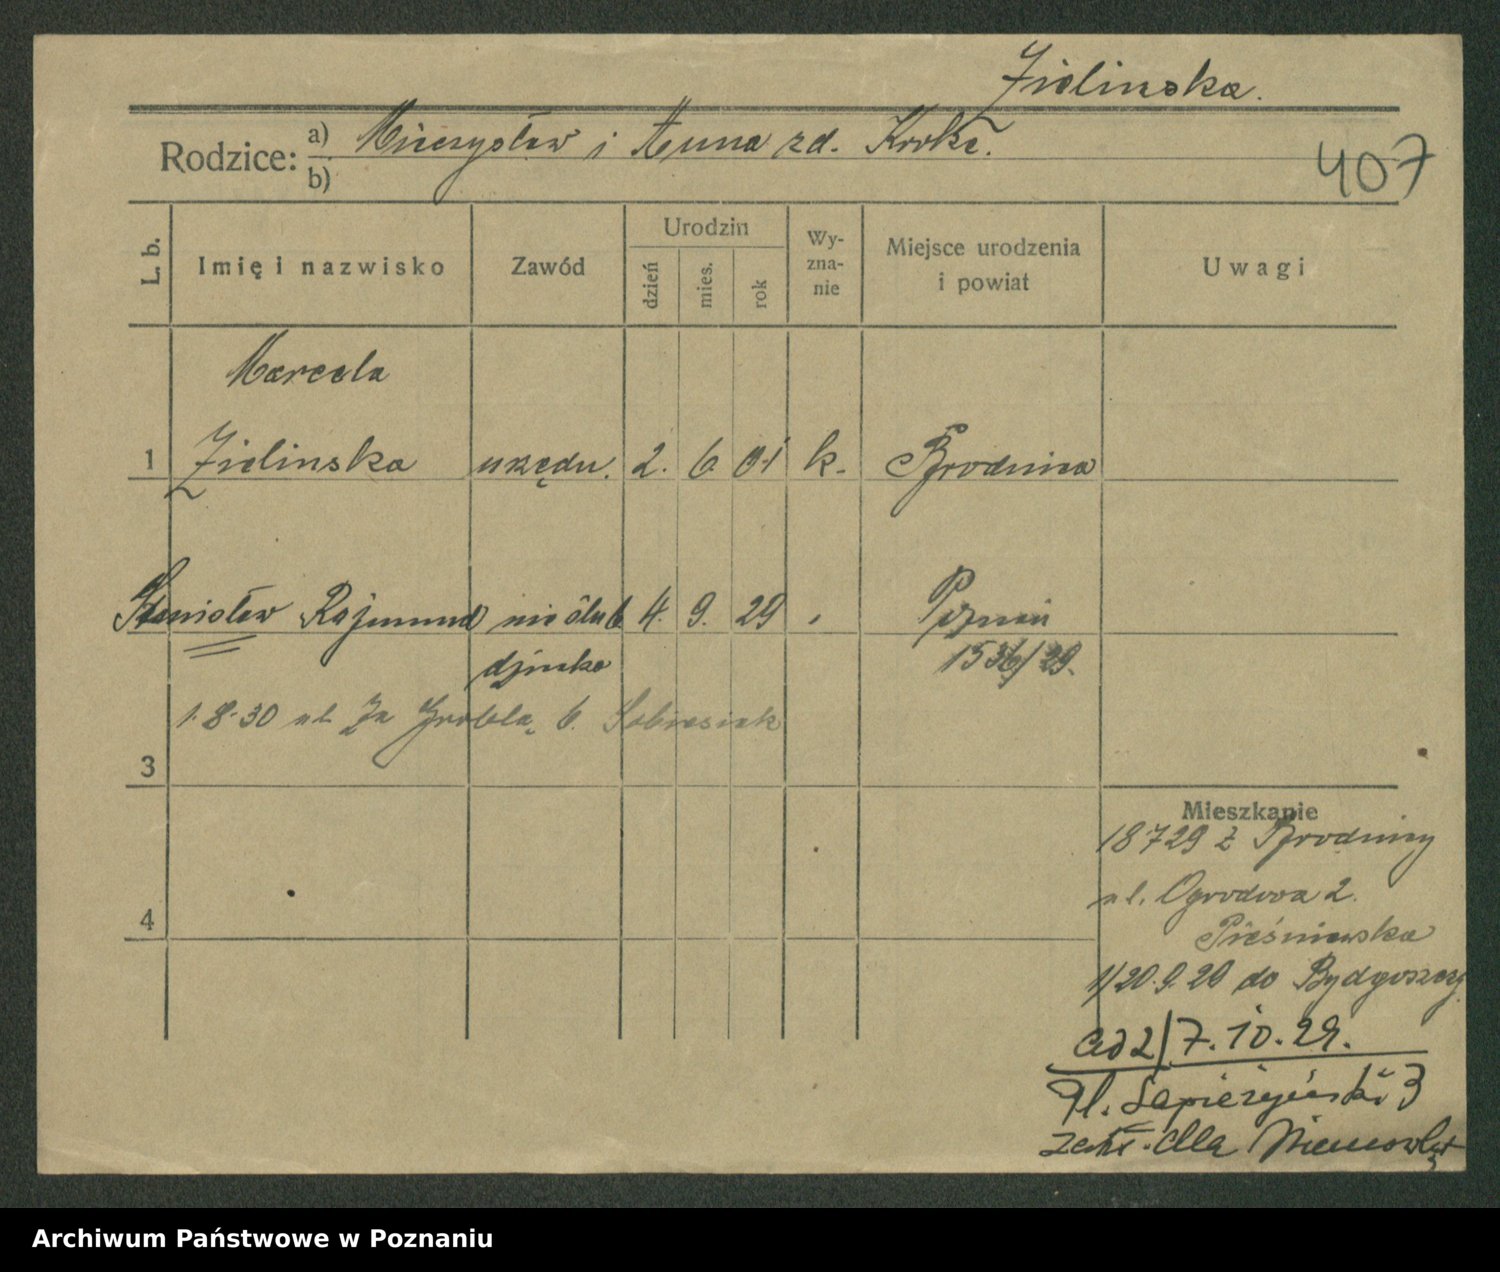 Zielinska.
Rodzice: a) Mieczysław i Anna zd. Krokc.
b)
407
L. b.
Imię i nazwisko
Zawód
Urodzin
dzień
mies.
rok
Wy-
zna-
nie
Miejsce urodzenia
i powiat
Uwagi
Marcela
1 Zielinska urzędn. 2. 6 01 k. Brodnica
Stanisław Rajmund nieślub 4. 9. 29 Poznań
dziecko 1536/29.
1.8.30 ul. Za Groblą 6. Sobiesiak
3
Mieszkanie
18729 z Brodnicy
4
ul. Ogrodowa 2.
Pieśniewska
1/20.9.29 do Bydgoszczy
ad 2/7.10.29.
Pl. Sapieżyński 3
zakł. dla Niemowląt
Archiwum Państwowe w Poznaniu